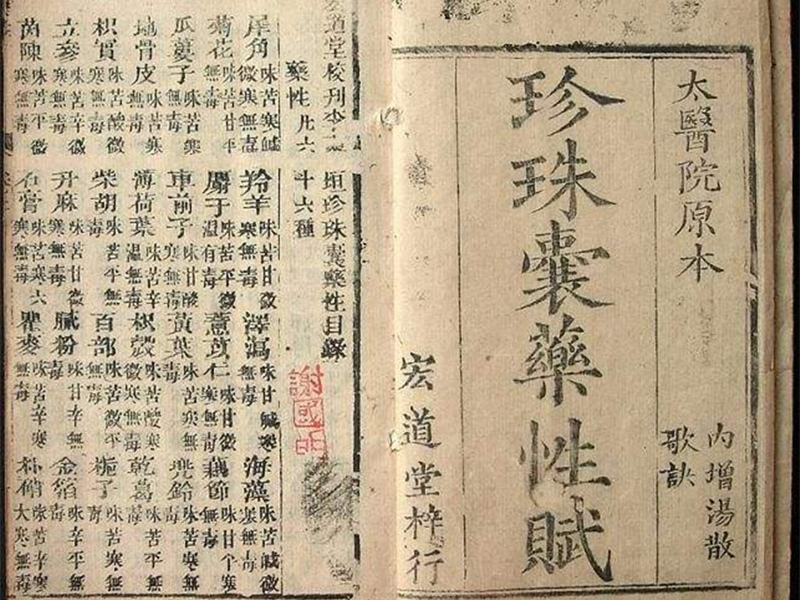 太醫院原本
內增湯散
歌訣
珍珠囊藥性賦
宏道堂梓行
道堂校刊李
垣珍珠囊藥性目錄
藥性凡六
十六種
犀角 味苦寒鹹微寒無毒 羚羊 味苦甘微寒無毒 澤瀉 味甘鹹寒無毒 海藻 味苦鹹微寒無毒
菊花 味苦甘平無毒 干 味苦平微溫有毒 薏苡仁 味甘微寒無毒 藕節 味甘个寒無毒
瓜蔞子 味苦寒無毒 車前子 味甘酸寒無毒 黃葉 味苦寒無毒 兜鈴 味苦寒無毒
地骨皮 味苦寒無毒 薄荷葉 味苦辛溫無毒 枳殼 味苦酸微寒無毒 乾葛 味苦平無毒
枳實 味苦酸微寒無毒 柴胡 味苦平無毒 百部 味苦微平無毒 梔子 味苦寒無毒
立參 味苦微寒無毒 升麻 味苦甘微寒無毒 膩粉 味甘辛無毒 金箔 味辛平無毒
茵陳 味苦平微寒無毒 石膏 味苦寒六寒無毒 瞿麥 味苦辛寒無毒 朴硝 味苦辛寒大寒無毒
謝國